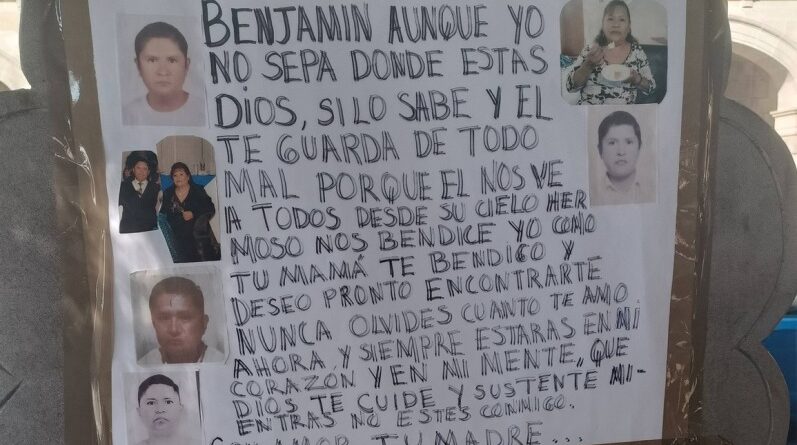 BENJAMIN AUNQUE YO
NO SEPA DONDE ESTAS
DIOS, SI LO SABE Y EL
TE GUARDA DE TODO
MAL PORQUE EL NOS VE
A TODOS DESDE SU CIELO HER
MOSO NOS BENDICE YO COMO
TU MAMÁ TE BENDIGO Y
DESEO PRONTO ENCONTRARTE
NUNCA OLVIDES CUANTO TE AMO
AHORA, Y SIEMPRE ESTARAS EN MI
CORAZÓN Y EN MI MENTE, QUE
DIOS TE CUIDE Y SUSTENTE MI-
ENTRAS NO ESTES CONMIGO.
CON AMOR TU MADRE...